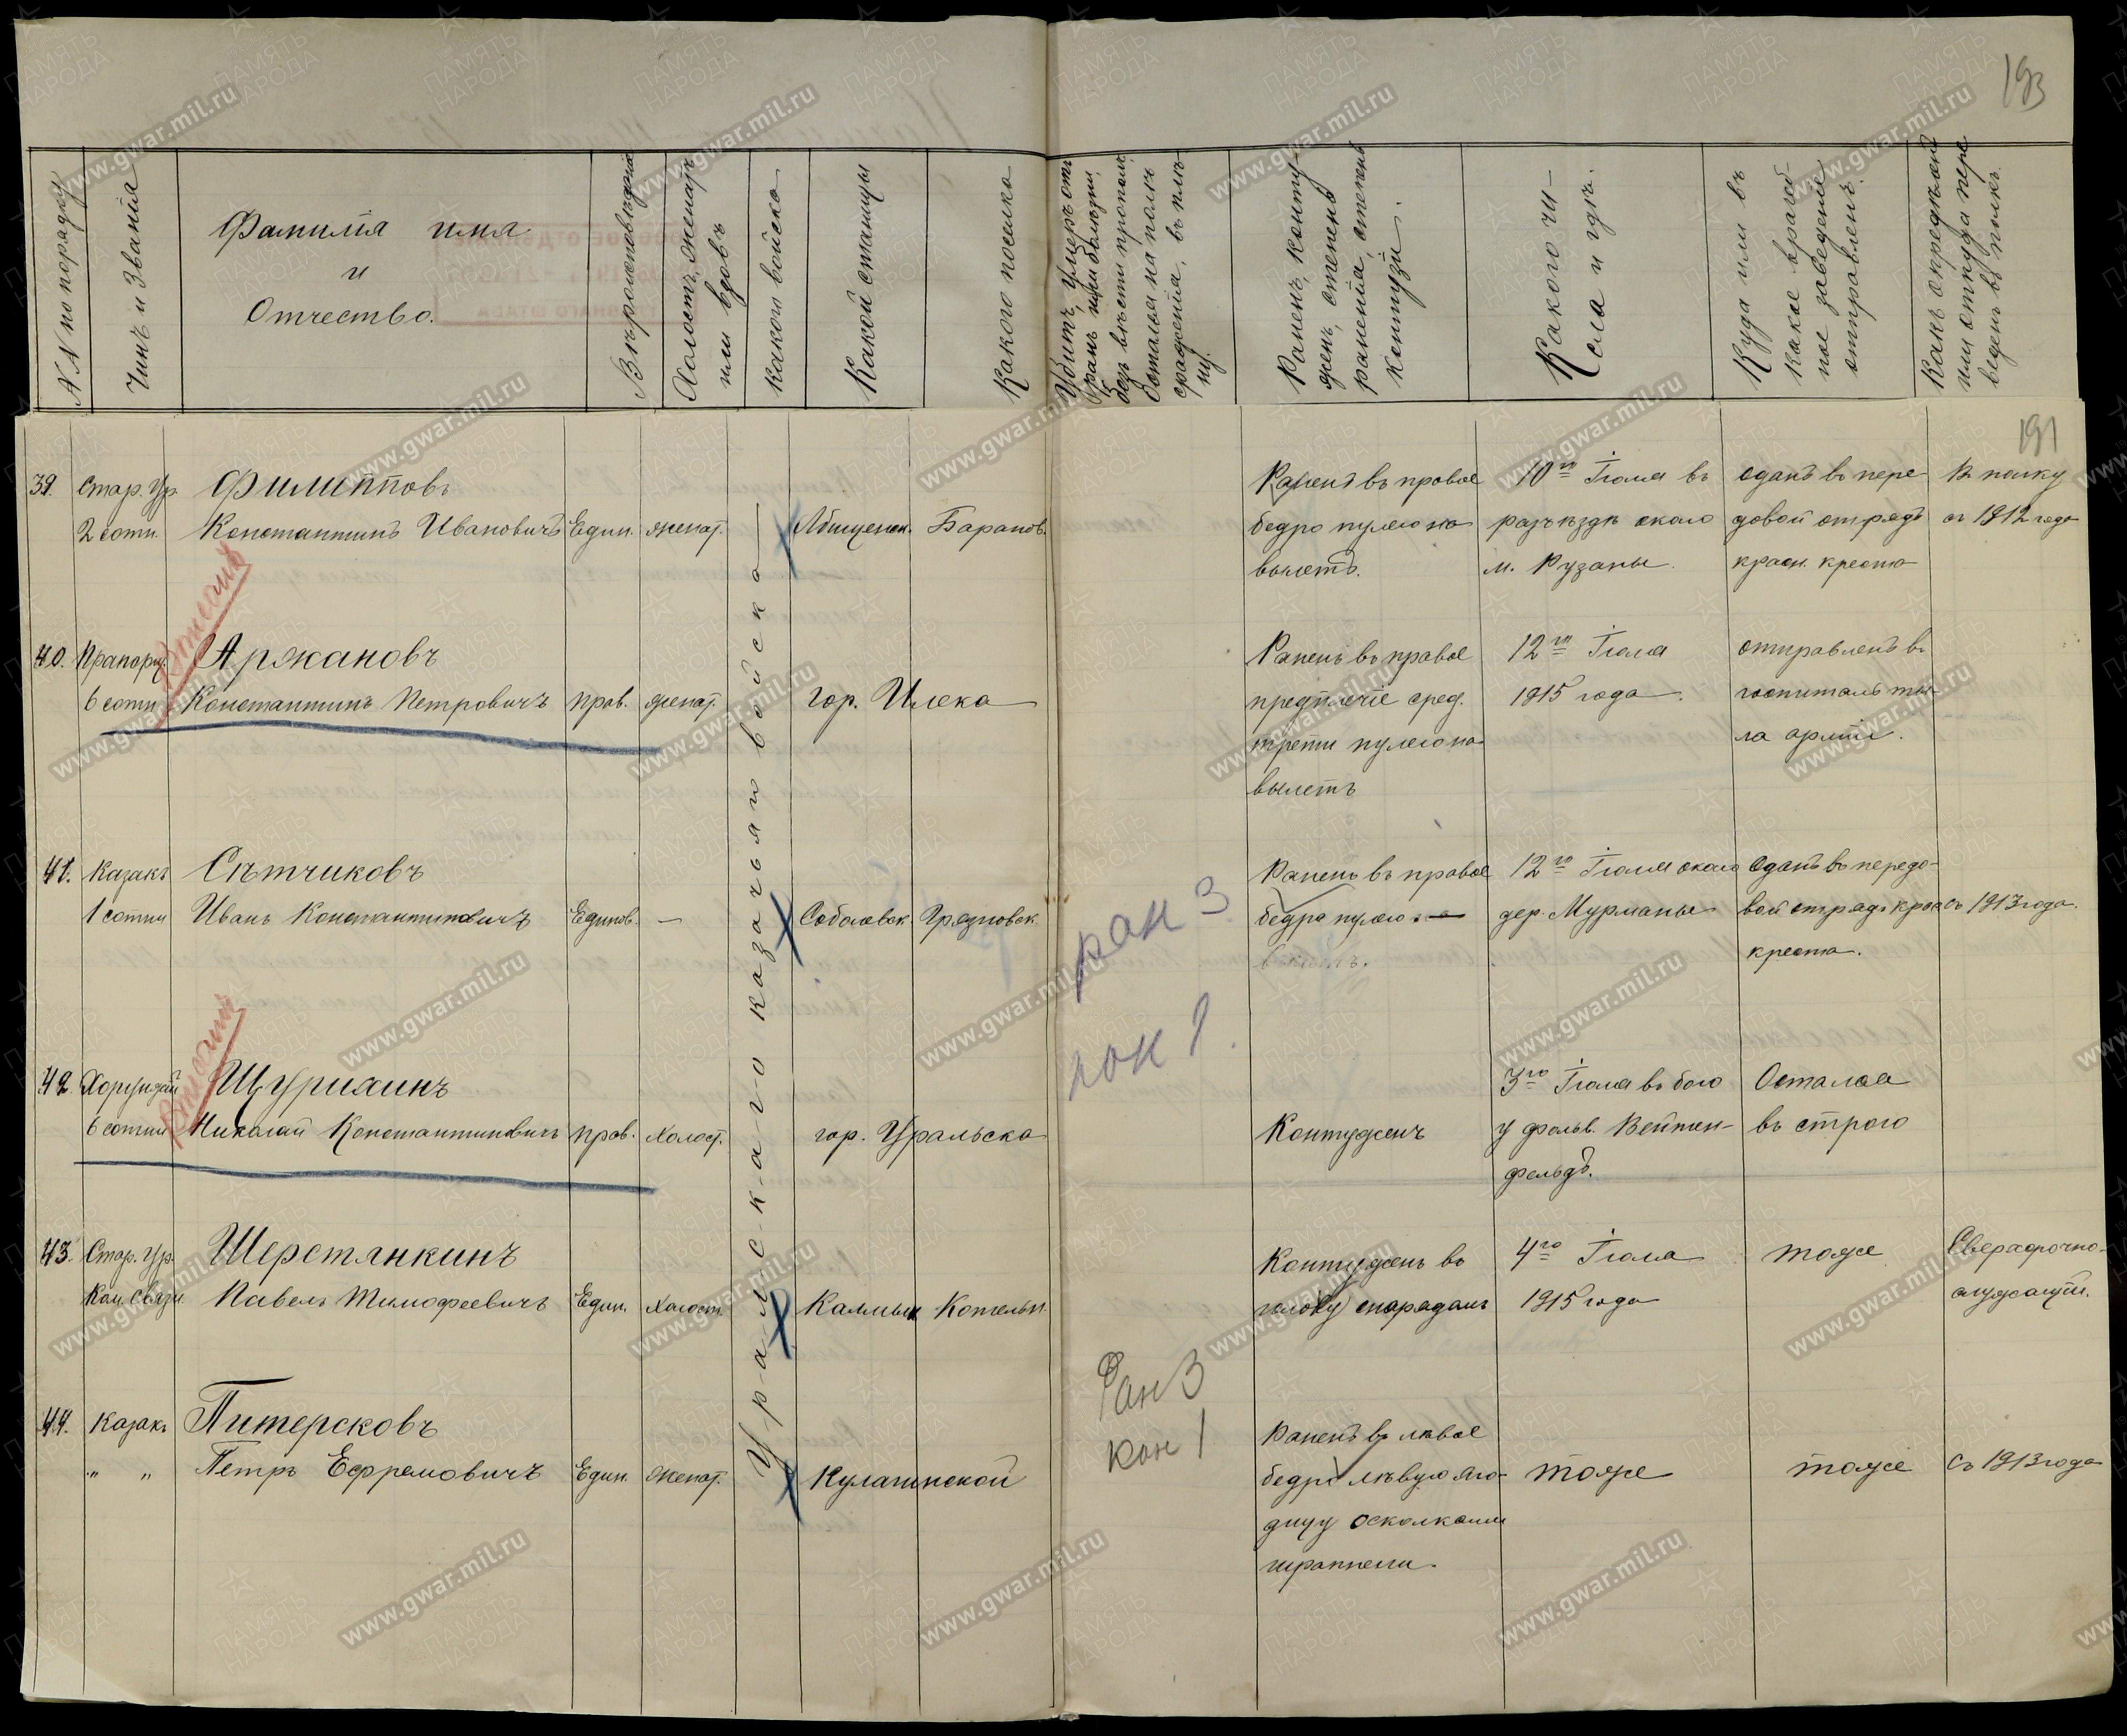 193
№№ по порядку
Чинъ и Званiя
Фамилiя имя
и
Отчество.
Вѣроисповѣданiя
Холостъ, женатъ
или вдовъ
какого войска
Какой станицы
Какого поселка
Убитъ, умеръ отъ
ранъ или болѣзни,
безъ вѣсти пропалъ,
Остался на полѣ
сраженiя, въ плѣ
ну.
Раненъ, конту-
женъ, степень
раненiя, степень
контузiи.
Какого чи-
сла и гдѣ.
Куда или въ
какое врачеб-
ное заведенiе
отправленъ.
Какъ опредѣленъ
или откуда пере
веденъ въ полкъ.
191
Уральскаго казачьяго войска
39. Стар. Ур. Филипповъ
2 сотн. Константинъ Ивановичъ Един. женат. Лбищенск. Баранов.
Раненъ въ правое
бедро пулею на
вылетъ.
10го Iюля въ
разъѣздѣ около
м. Рузаны
сданъ въ пере
довой отрядъ
красн. креста
въ полку
съ 1912 года
Отослан
40. Прапорщ. Аржановъ
6 сотн. Константинъ Петровичъ прав. женат. гор. Илека
Раненъ въ правое
предплечiе сред.
трети пулею на
вылетъ
12го Iюля
1915 года
отправленъ въ
госпиталь ты-
ла армiи.
41. казакъ Сѣтчиковъ
1 сотни Иванъ Константиновичъ Единов. — Соболевск. Грязновск.
ран 3
Раненъ въ правое
бедро пулею
12го Iюля около
дер. Мурманы
Сданъ въ передо-
вой отрядъ крас
креста.
съ 1913 года.
42. Хорунжiй Щурихинъ
6 сотни Николай Константиновичъ прав. холост. гор. Уральска
Контуженъ
3го Iюля въ бою
у фольв. Вейтен-
фельдъ.
Остался
въ строю
43. Стар. Ур. Шерстянкинъ
Ком. связи Павелъ Тимофеевичъ Един. Холост. Калмык Котельн.
Контуженъ въ
голову снарядамъ
4го Iюля
1915 года
тоже
Сверхсрочно-
служащiй.
44. казакъ Питерсковъ
" " Петръ Ефремовичъ Един. женат. Кулагинской
Ран 3
кон 1
Раненъ въ лѣвое
бедро лѣвую яго-
дицу осколками
шрапнели.
тоже
тоже
съ 1913 года